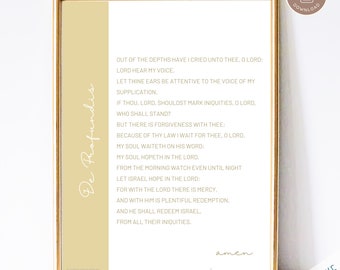 DOWNLOAD
De Profundis
OUT OF THE DEPTHS HAVE I CRIED UNTO THEE, O LORD;
LORD HEAR MY VOICE.
LET THINE EARS BE ATTENTIVE TO THE VOICE OF MY
SUPPLICATION.
IF THOU, LORD, SHOULDST MARK INIQUITIES, O LORD,
WHO SHALL STAND?
BUT THERE IS FORGIVENESS WITH THEE:
BECAUSE OF THY LAW I WAIT FOR THEE, O LORD.
MY SOUL WAITETH ON HIS WORD;
MY SOUL HOPETH IN THE LORD.
FROM THE MORNING WATCH EVEN UNTIL NIGHT
LET ISRAEL HOPE IN THE LORD;
FOR WITH THE LORD THERE IS MERCY,
AND WITH HIM IS PLENTIFUL REDEMPTION.
AND HE SHALL REDEEM ISRAEL,
FROM ALL THEIR INIQUITIES.
amen